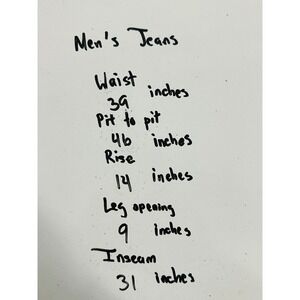 Men's Jeans
Waist
39 inches
Pit to pit
46 inches
Rise
14 inches
Leg opening
9 inches
Inseam
31 inches